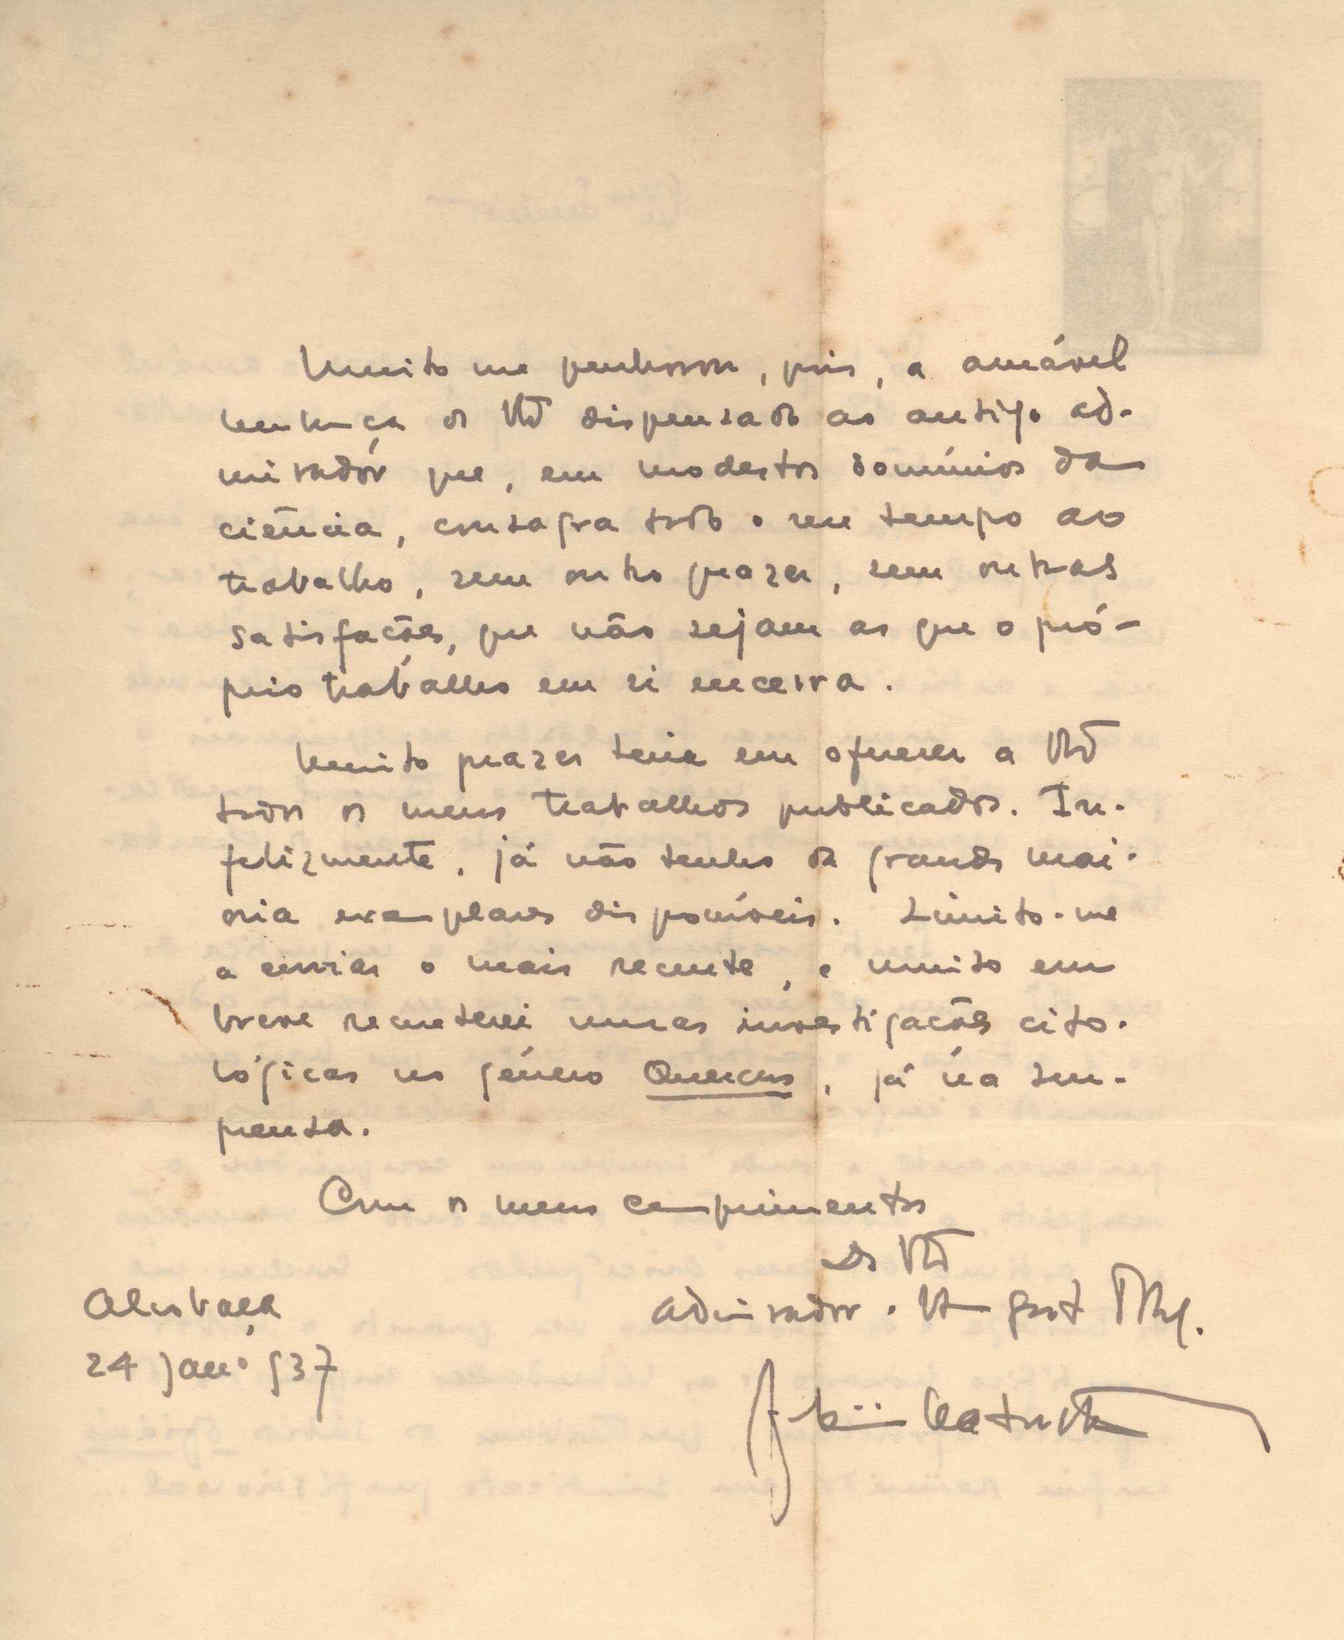 Muito me penhorou, pois, a amável
lembrança de V. Ex.ª dispensada ao antigo ad-
mirador que, em modestos domínios da
ciência, consagra todo o seu tempo ao
trabalho, sem outro prazer, sem outras
satisfações, que não sejam as que o pró-
prio trabalho em si encerra.
Muito prazer teria em oferecer a
todos os meus trabalhos publicados. In-
felizmente, já não tenho da grande maio-
ria exemplares disponíveis. Limito-me
a enviar o mais recente, e muito em
breve remeterei umas investigações cito-
lógicas no género Quercus, já na im-
prensa.
Com os meus cumprimentos
De
Admirador
Alcobaça
24 Janº 937